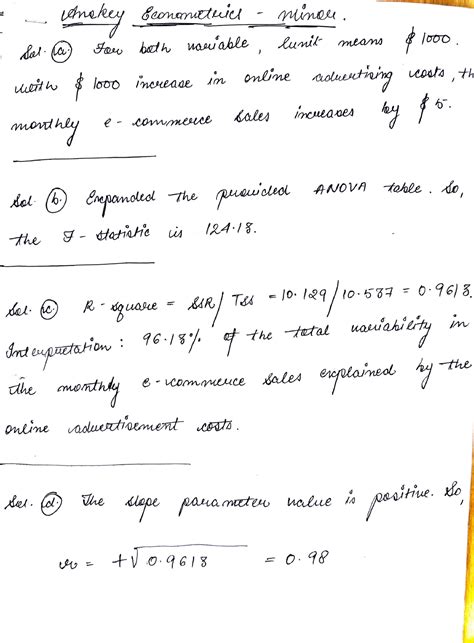 Anskey Econometrics - Minor.
Sol. (a) For both variable, 1unit means $ 1000.
with $ 1000 increase in online advertising costs, th
monthly e-commerce sales increases by $ 5.
Sol. (b.) Expanded the provided ANOVA table. So,
the F-statistic is 124.18.
Sol. (c) R-square = SSR/TSS = 10.129/10.537 = 0.9613.
Interpretation : 96.18% of the total variability in
the monthly e-commerce sales explained by the
online advertisement costs.
Sol. (d.) The slope parameter value is positive. So,
r = +√0.9618 = 0.98